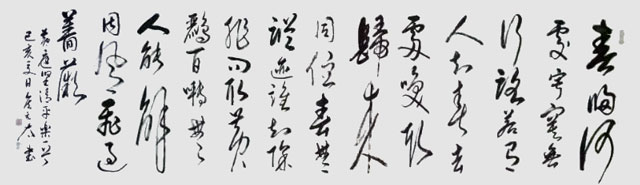 春歸何
處寂寞無
行路若有
人知春去
處喚取
歸來
同住春無
蹤迹誰知除
非問取黃
鸝百囀無
人能解
因風飛過
薔薇
黃庭堅清平樂
己亥夏日書